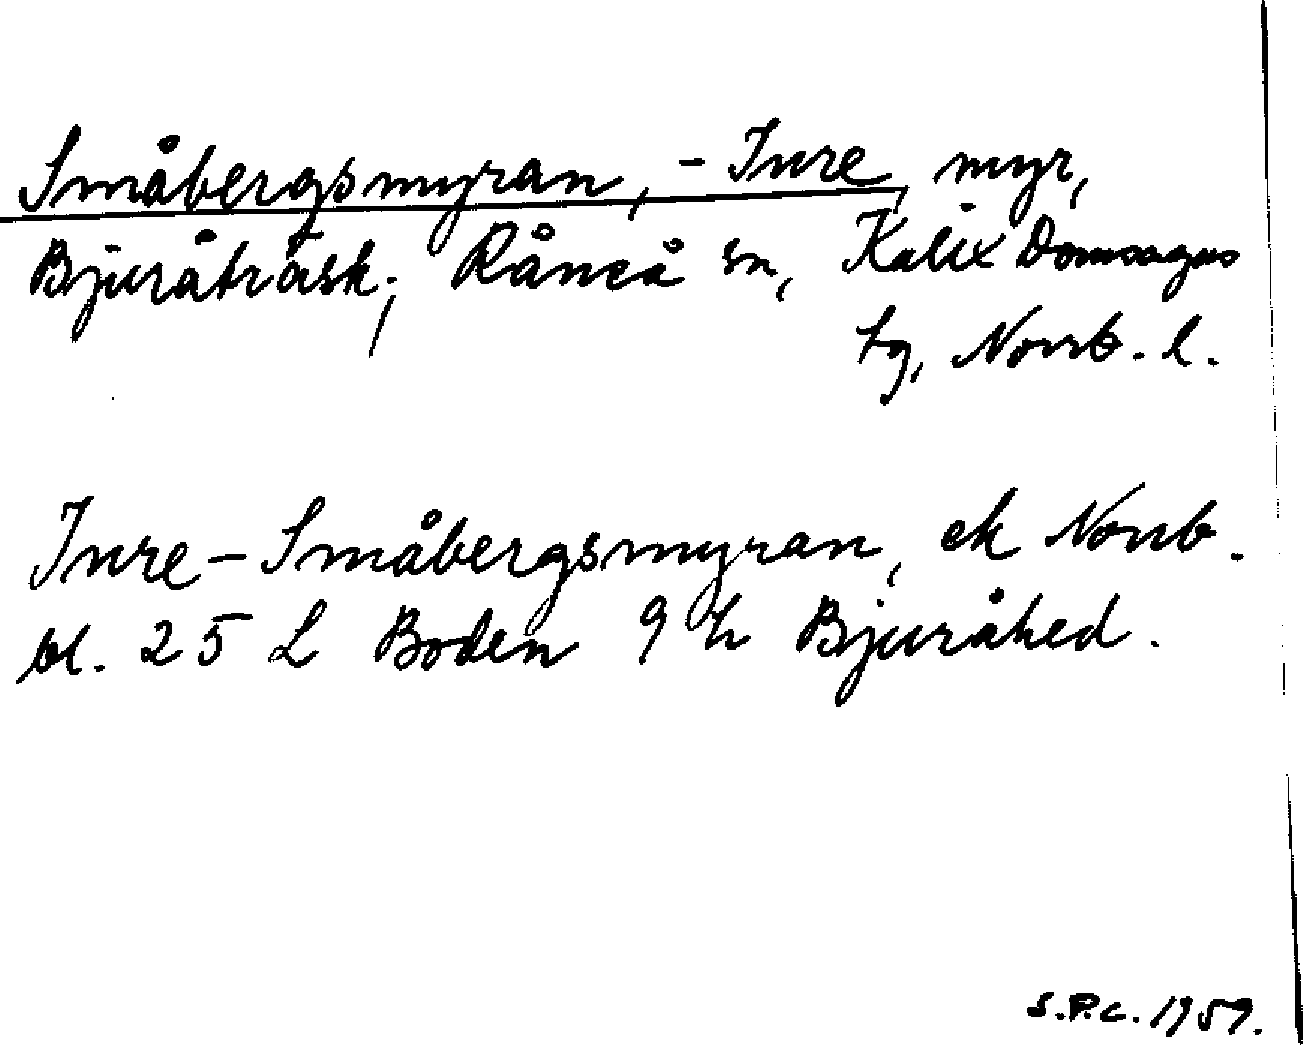 Småbergsmyran, - Inre, myr,
Bjuråträsk, Råneå sn, Kalix Domsagas
tg, Norrb. l.
Inre-Småbergsmyran, ek Norrb.
bl. 25 L Boden 9 h Bjuråhed.
S.P.C. 1959.